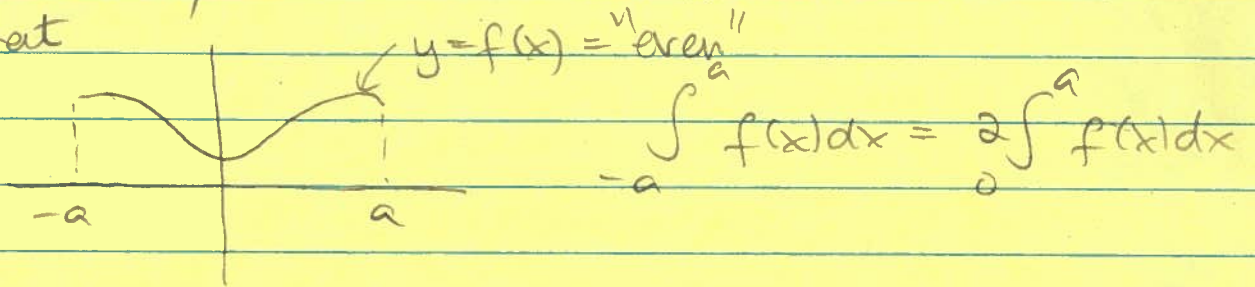 at
y=f(x) = "even"
∫_{-a}^{a} f(x)dx = 2∫_{0}^{a} f(x)dx
-a a